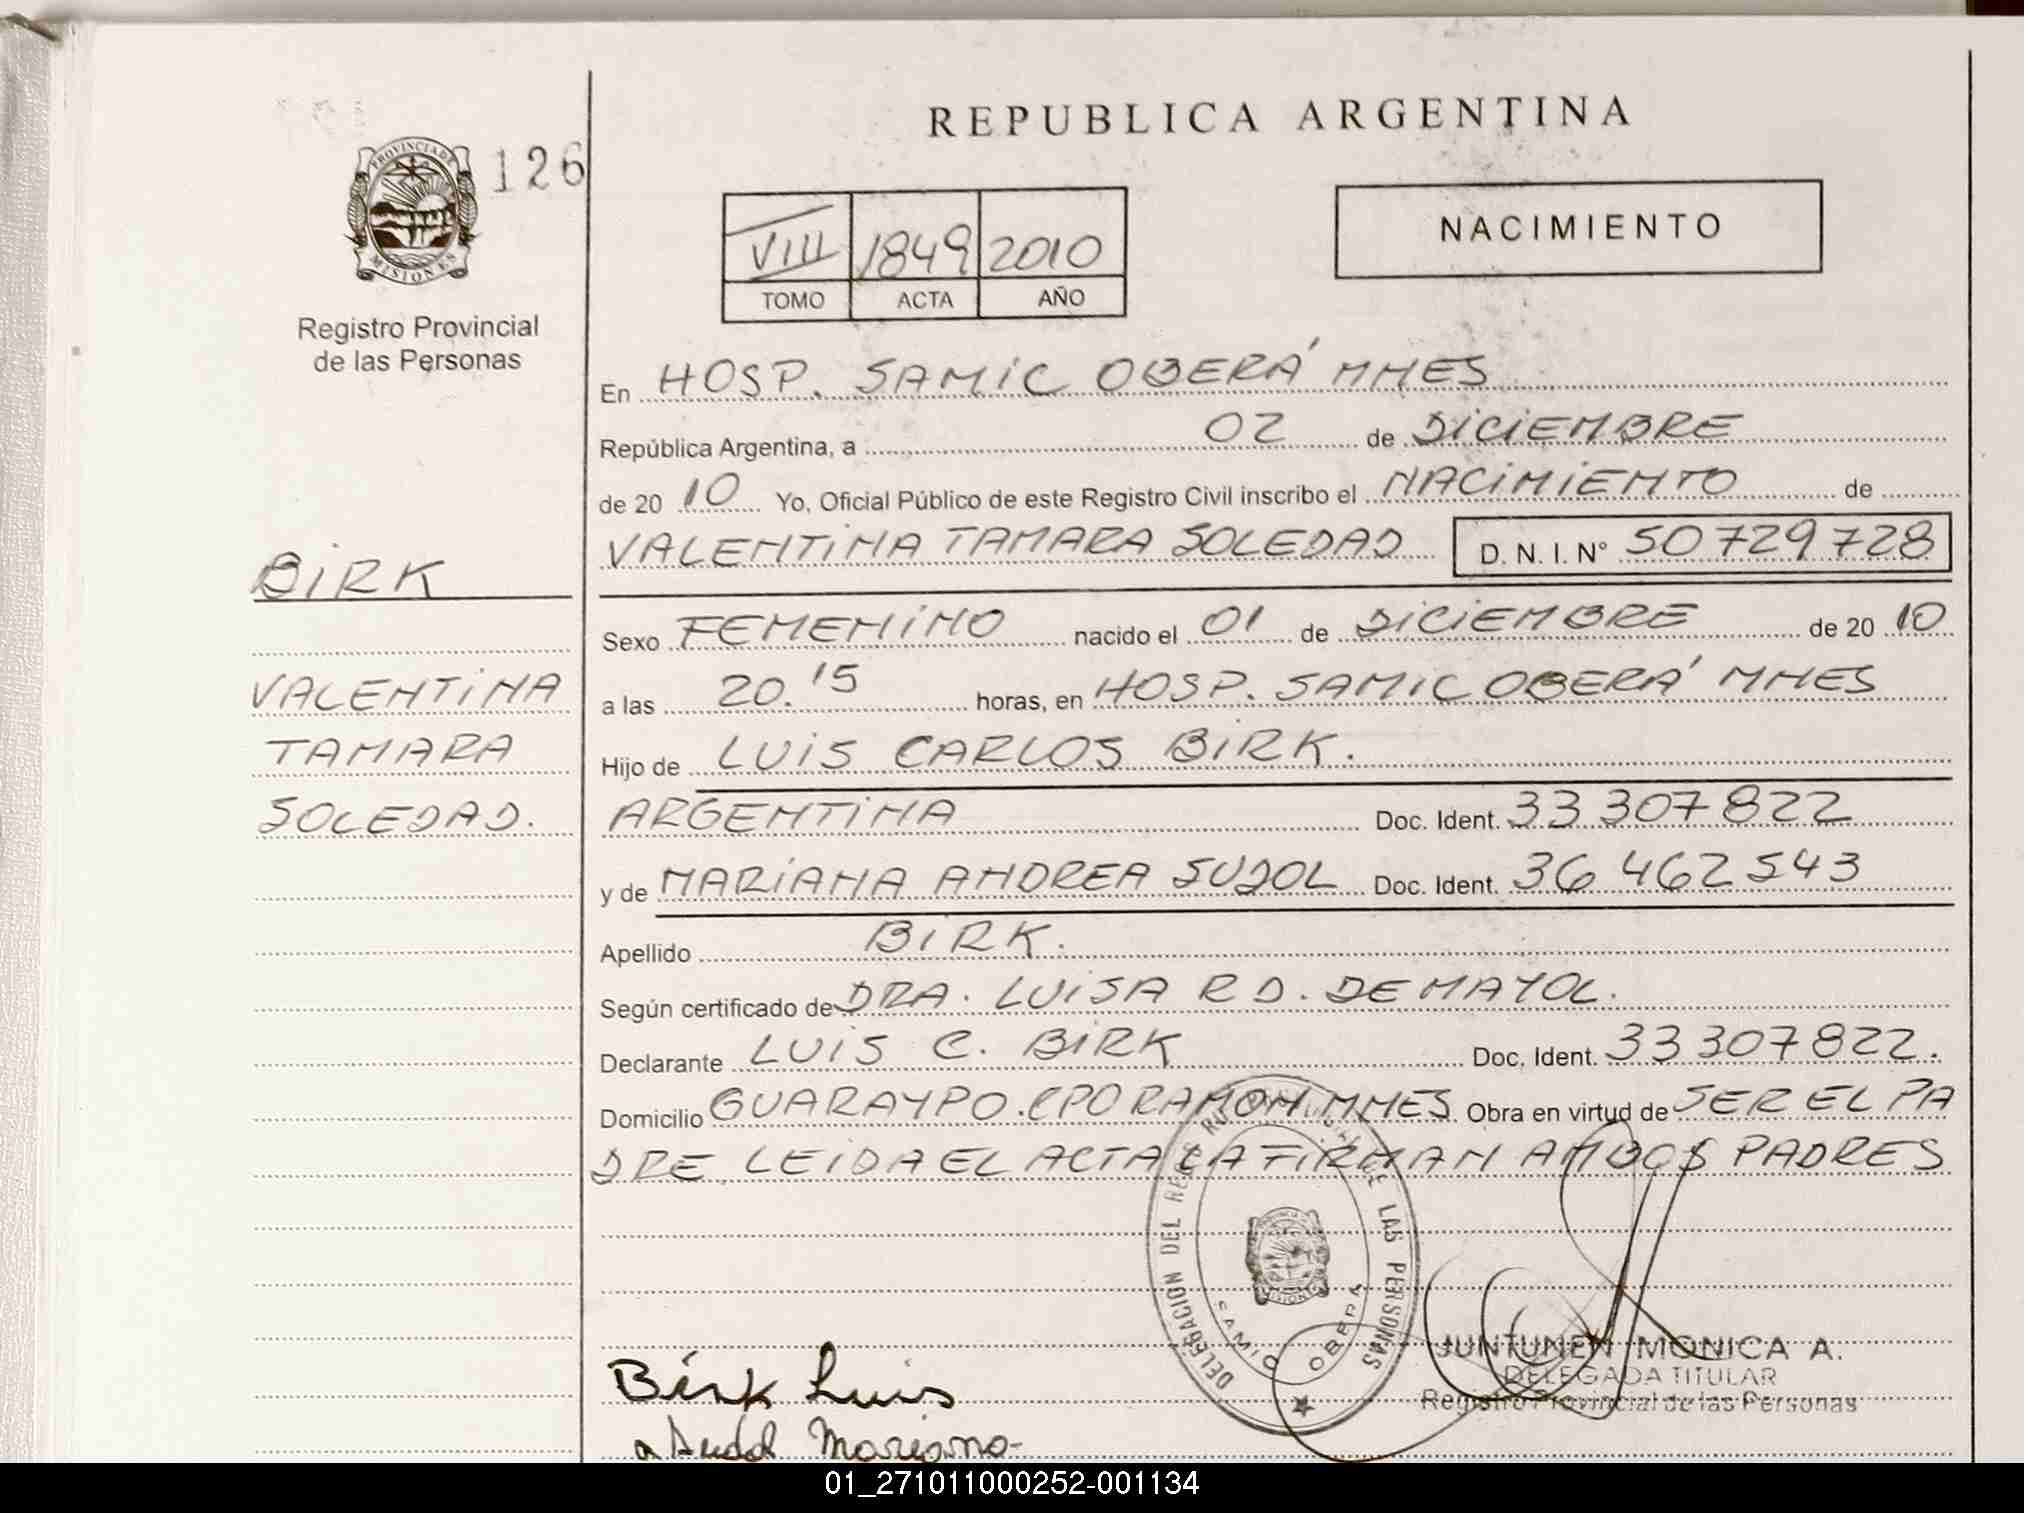 REPUBLICA ARGENTINA
PROVINCIA DE
MISIONES
126
Registro Provincial
de las Personas
VIII 1849 2010
TOMO ACTA AÑO
NACIMIENTO
En HOSP. SAMIC OBERÁ MNES
República Argentina, a 02 de DICIEMBRE
de 20 10 Yo, Oficial Público de este Registro Civil inscribo el NACIMIENTO de
VALENTINA TAMARA SOLEDAD D. N. I. N° 50 729 728
BIRK
VALENTINA
TAMARA
SOLEDAD.
Sexo FEMENINO nacido el 01 de DICIEMBRE de 20 10
a las 20.15 horas, en HOSP. SAMIC OBERÁ MNES
Hijo de LUIS CARLOS BIRK.
ARGENTINA Doc. Ident. 33 307 822
y de MARIANA ANDREA SUJOL Doc. Ident. 36 462 543
Apellido BIRK.
Según certificado de DRA. LUISA R D. DE MAYOL.
Declarante LUIS C. BIRK Doc. Ident. 33 307 822.
Domicilio GUARAYPO. CPO RAMON MNES Obra en virtud de SER EL PA
DRE LEIDA EL ACTA LA FIRMAN AMBOS PADRES
DELEGACION DEL REG DE LAS PERSONAS
SAMIC OBERA
JUNTUNEN MONICA A.
DELEGADA TITULAR
Registro Provincial de las Personas
Birk Luis
Mariana
01_271011000252-001134